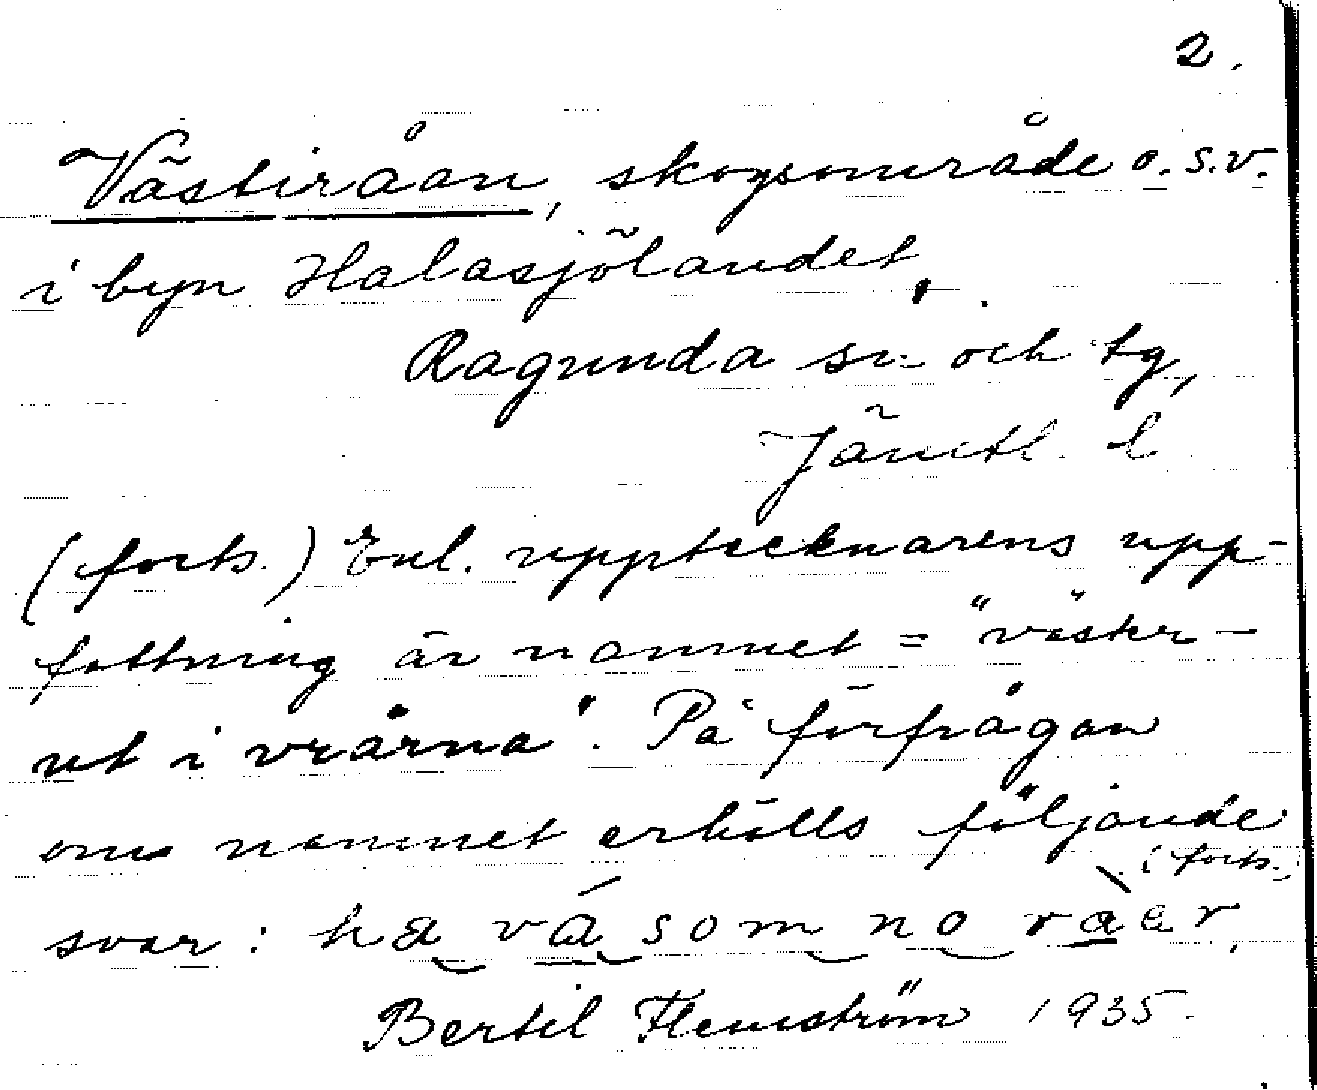 2.
Västiråan, skogsområde o.s.v.
i byn Halasjölandet,
Ragunda sn och tg,
Jämtl. l
(forts.) Enl. upptecknarens upp-
fattning är namnet = "väster-
ut i vrårna". På förfrågan
om namnet erhölls följande
(forts.)
svar: ha vá som no ràer.
Bertil Flemström 1935.